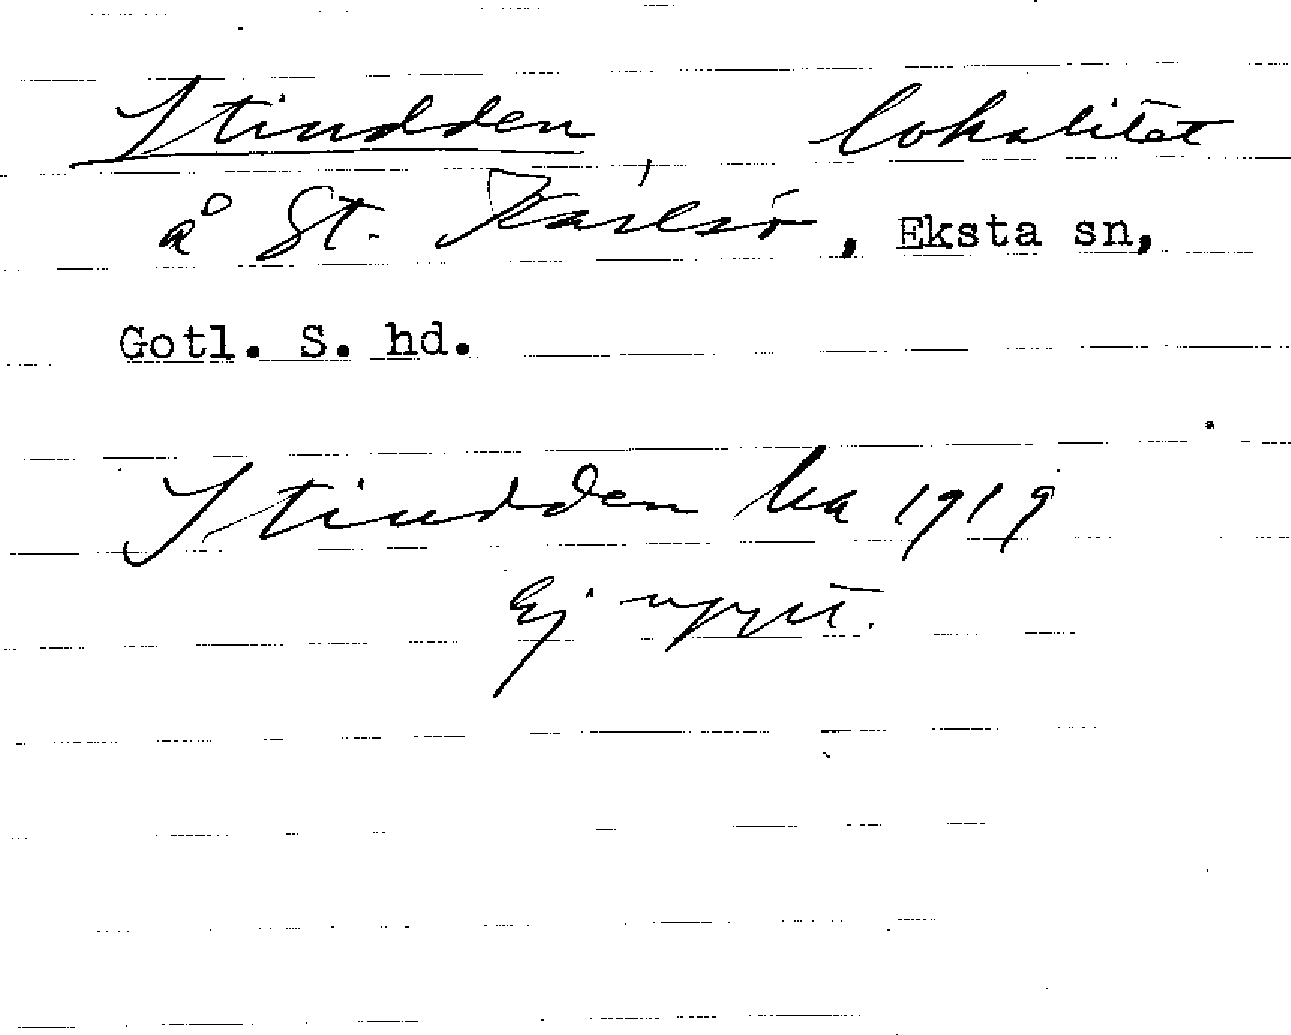 Stindden, lokalitet
å St. Karlsö, Eksta sn,
Gotl. S. hd.
Stindden ka 1919
Ej uppt.